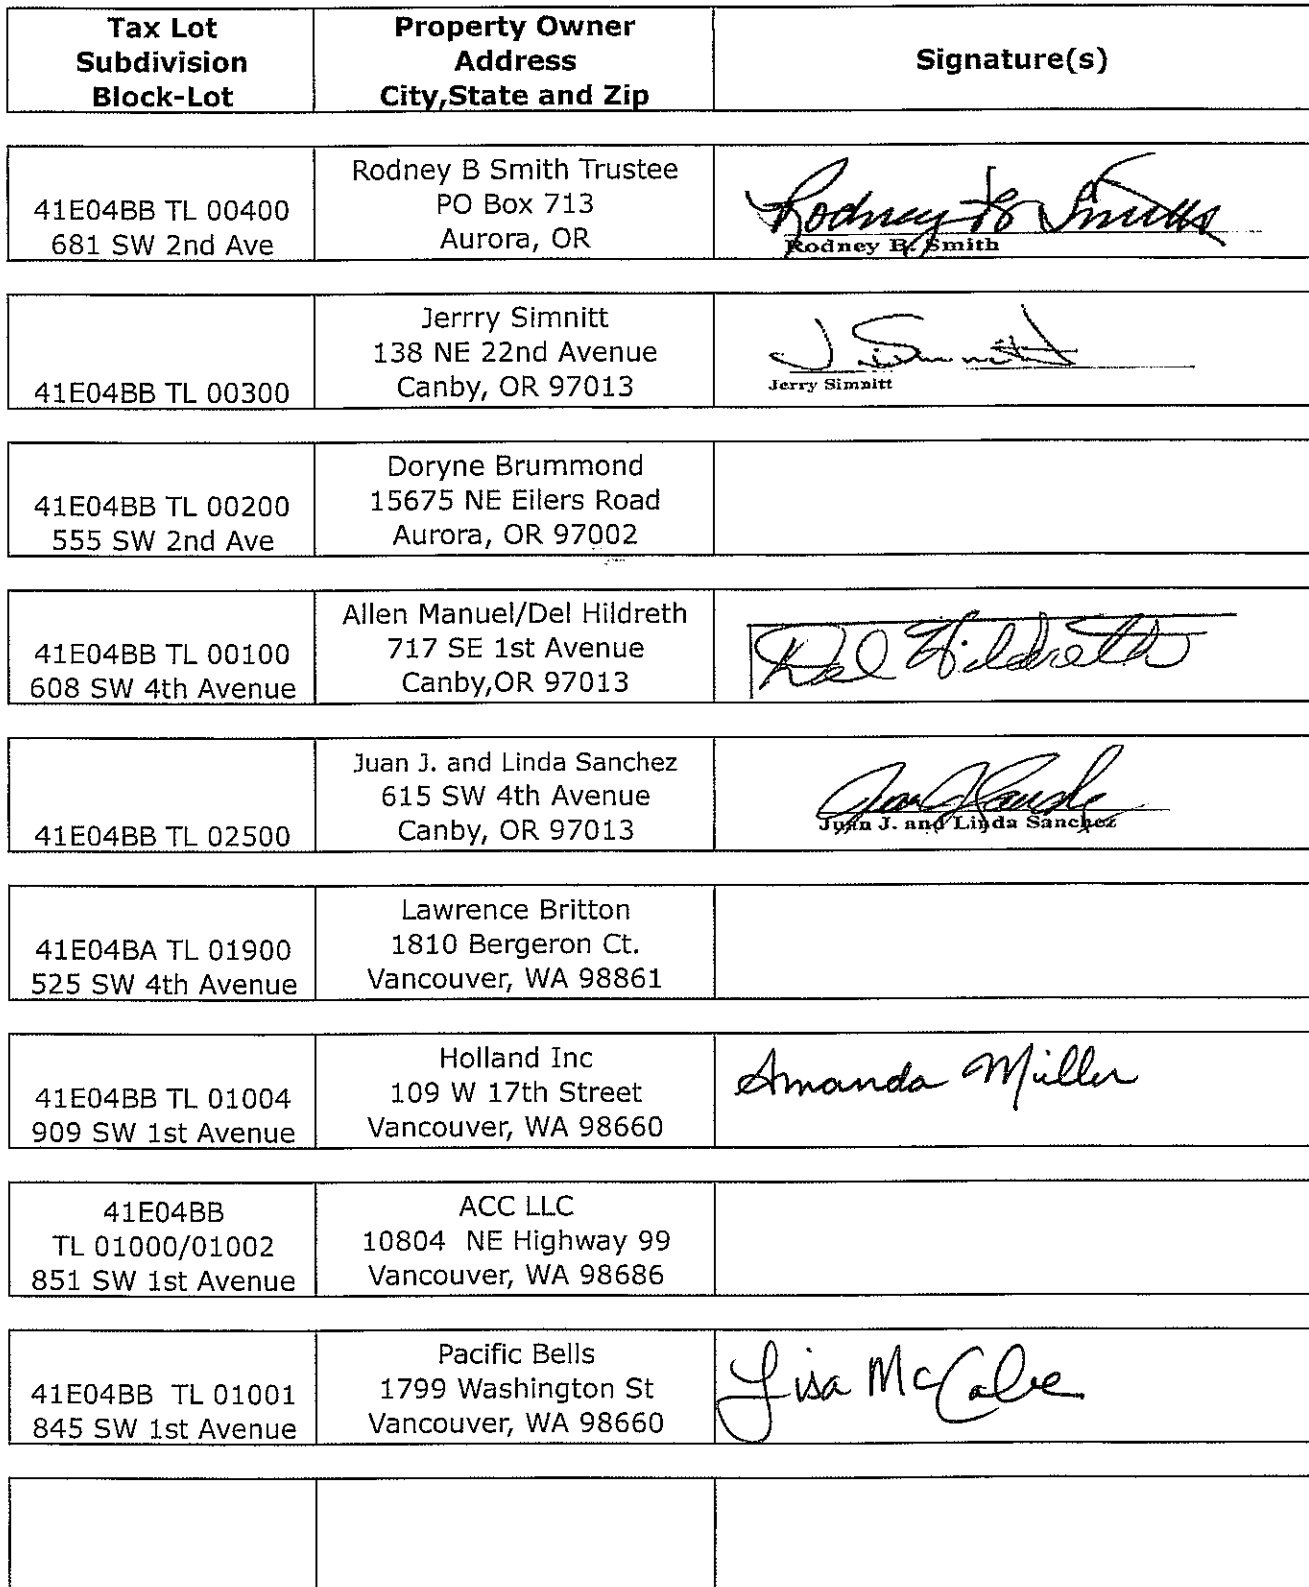 Tax Lot
Subdivision
Block-Lot
Property Owner
Address
City,State and Zip
Signature(s)
41E04BB TL 00400
681 SW 2nd Ave
Rodney B Smith Trustee
PO Box 713
Aurora, OR
Rodney B Smith
Rodney B. Smith
41E04BB TL 00300
Jerrry Simnitt
138 NE 22nd Avenue
Canby, OR 97013
J Simnitt
Jerry Simnitt
41E04BB TL 00200
555 SW 2nd Ave
Doryne Brummond
15675 NE Eilers Road
Aurora, OR 97002
41E04BB TL 00100
608 SW 4th Avenue
Allen Manuel/Del Hildreth
717 SE 1st Avenue
Canby,OR 97013
Del Hildreth
41E04BB TL 02500
Juan J. and Linda Sanchez
615 SW 4th Avenue
Canby, OR 97013
Juan J. and Linda Sanchez
41E04BA TL 01900
525 SW 4th Avenue
Lawrence Britton
1810 Bergeron Ct.
Vancouver, WA 98861
41E04BB TL 01004
909 SW 1st Avenue
Holland Inc
109 W 17th Street
Vancouver, WA 98660
Amanda Miller
41E04BB
TL 01000/01002
851 SW 1st Avenue
ACC LLC
10804 NE Highway 99
Vancouver, WA 98686
41E04BB TL 01001
845 SW 1st Avenue
Pacific Bells
1799 Washington St
Vancouver, WA 98660
Lisa McCabe